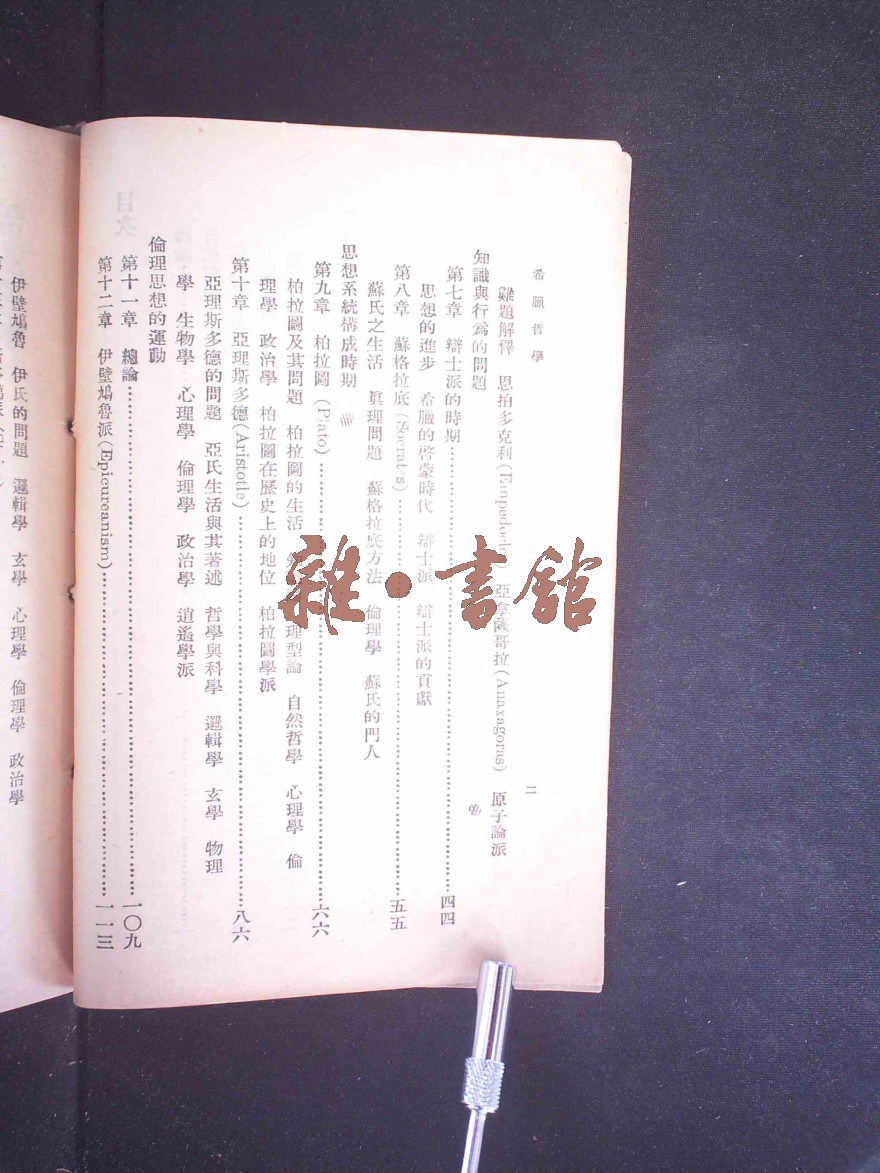 希臘哲學
二
難題解釋 恩拍多克利(Empedocles) 亞拿薩哥拉(Anaxagoras) 原子論派
知識與行爲的問題
第七章 辯士派的時期 四四
思想的進步 希臘的啓蒙時代 辯士派 辯士派的貢獻
第八章 蘇格拉底(Socrates) 五五
蘇氏之生活 眞理問題 蘇格拉底方法 倫理學 蘇氏的門人
思想系統構成時期
第九章 柏拉圖(Plato) 六六
柏拉圖及其問題 柏拉圖的生活 理型論 自然哲學 心理學 倫
理學 政治學 柏拉圖在歷史上的地位 柏拉圖學派
第十章 亞理斯多德(Aristotle) 八六
亞理斯多德的問題 亞氏生活與其著述 哲學與科學 邏輯學 玄學 物理
學 生物學 心理學 倫理學 政治學 逍遙學派
倫理思想的運動
第十一章 總論 一〇九
第十二章 伊壁鳩魯派(Epicureanism) 一一三
伊壁鳩魯 伊氏的問題 邏輯學 玄學 心理學 倫理學 政治學
雜·書館